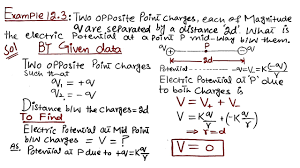 Example 12.3: Two opposite Point charges, each of Magnitude
qv are separated by a distance '2d'. What is
the electric potential at a point P mid-way b/w them.
Sol BY Given data
Two opposite Point charges
Such that
q₁ = +qv
q₂ = -qv
Distance b/w the charges = 2d
To Find
Electric Potential at Mid Point
b/w charges = V = ?
As, Potential at P due to +qv = K qv/r
+qv P -qv
2d
Potential -qv = V = K(-qv)/r
Electric Potential at 'P' due
to both charges is
V = V₊ + V₋
V = K qv/r + (-K qv/r)
⇒ r = d
V = 0